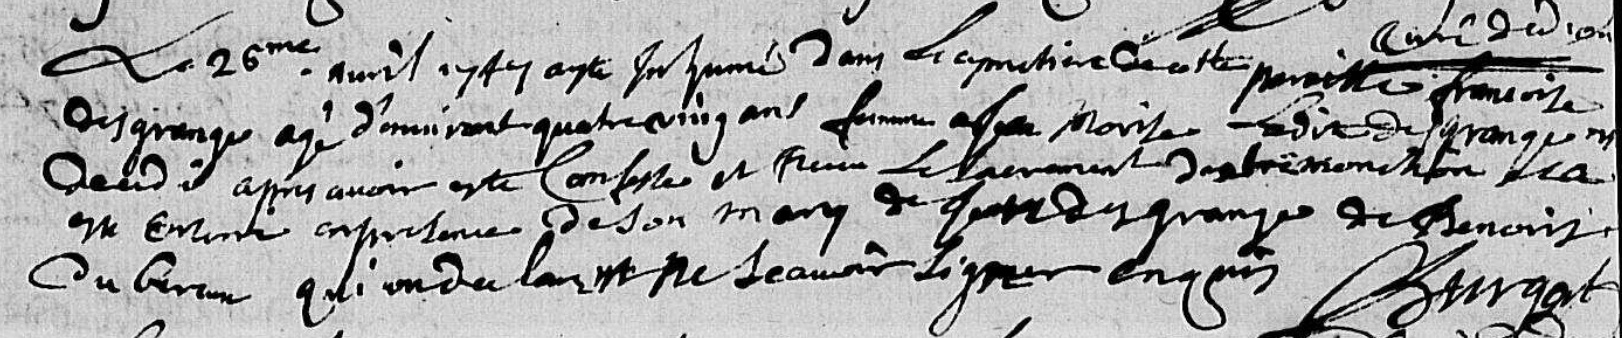 curé dudiou
Le 26me auril a esté Inhumé Dans Le cymetiere De cette paroisse francoise
Desgrange agé d'enuiront quatre uing ans femme a Morise Ladite desgrange est
decedé appres auoir esté Confessé et Receu Le sacrement D'extremonction Ela
esté Enterré en presence de son mary de desgrange de Benoist
Du beron qui on declaret Ne Scauoir Signer Enquis Bourgat